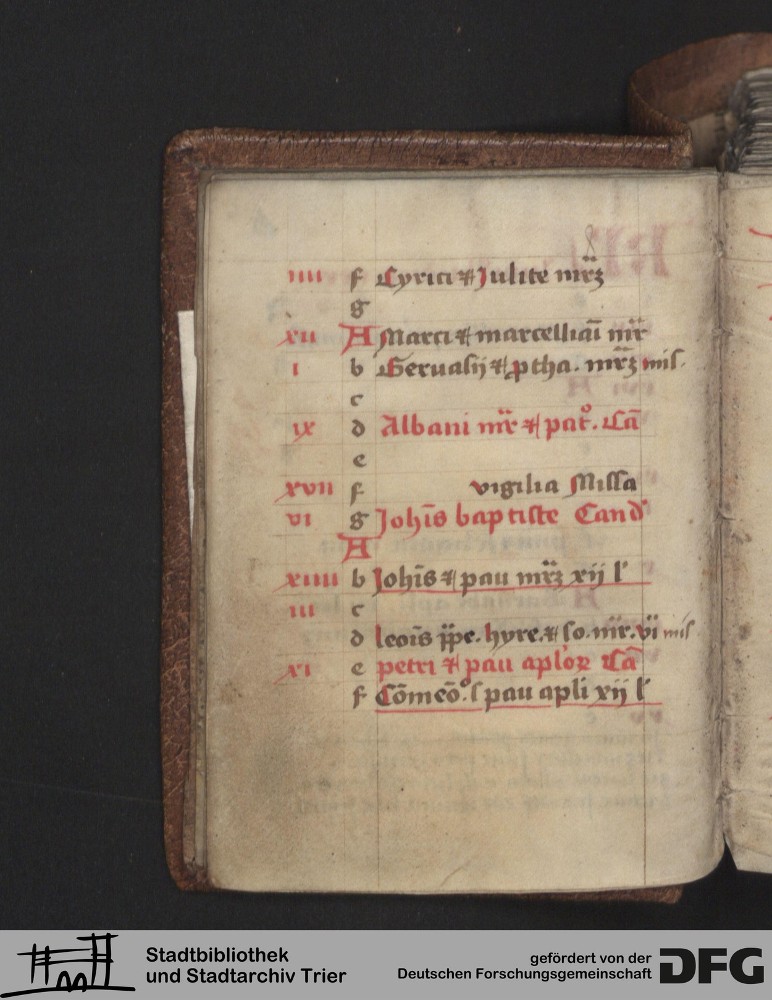 iiii f Cyrici ⁊ Julite mr̄ꝫ
g
xii A Marci ⁊ marcelliaī mr̄
i b Geruasij ⁊ ꝓtha. mr̄ꝫ mis.
c
ix d Albani mr̄ ⁊ pat°. Cā
e
xvii f vigilia Missa
vi g Johīs baptiste Cand
A
xiiii b Johīs ⁊ pau mr̄ꝫ xij l'
iii c
d leoīs p̄pe. hyre. ⁊ so. mr̄. vī mis
xi e petri ⁊ pau aploꝝ Cā
f Cōmeō°. s pau apli xij l'
Stadtbibliothek
und Stadtarchiv Trier
gefördert von der
Deutschen Forschungsgemeinschaft
DFG